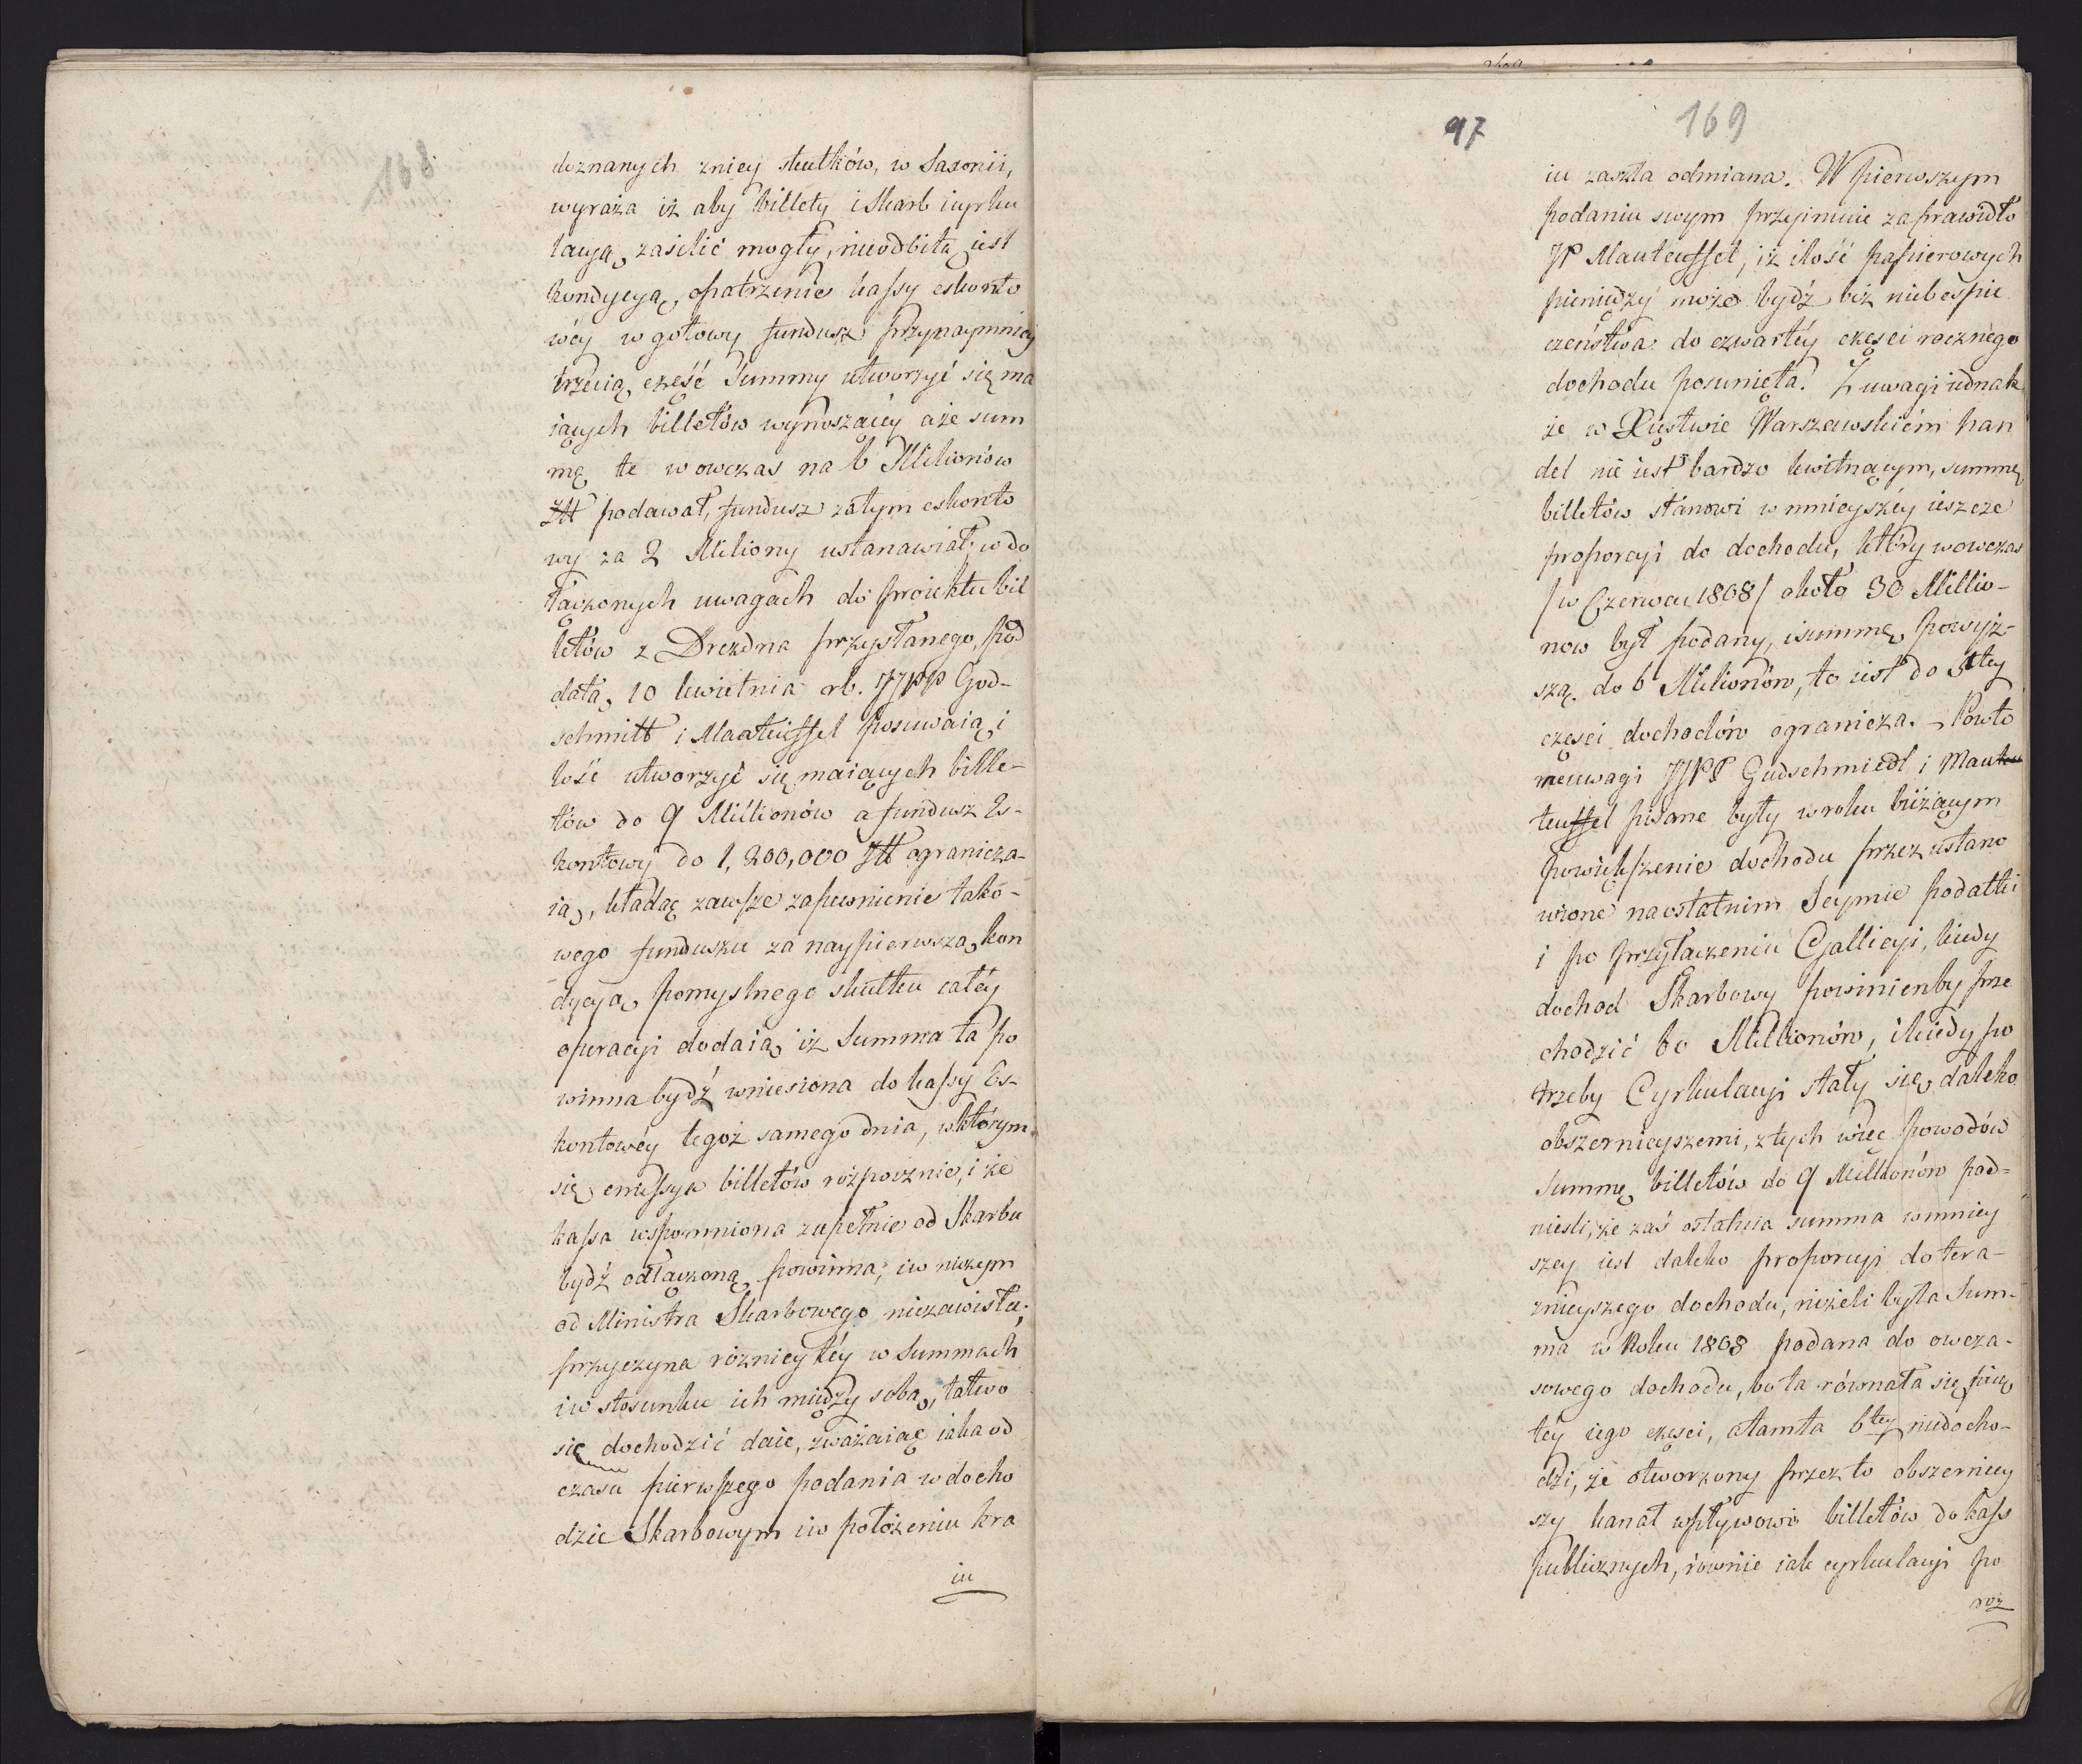 168
doznanych zniey skutków, w Saxonii,
wyraża iż aby billety i Skarb icyrku
lacyą zasilić mogły, nieodbitą iest
kondycyą, opatrzenie kassy eskonto
wéy w gotowy fundusz przynaymniéy
trzecią część Summy utworzyć się ma
iących billetów wynoszący aże sum
mę te wowczas na 6 Milionów
Złł podawał, fundusz zatym eskonto
wy za 2 Miliony ustanawiał; w do
łączonych uwagach do proiektu bil
letów z Drezdna przysłanego, pod
datą 10 kwietnia rb. JJPP God-
schmitt i Maateuffel posuwaią i
lość utworzyć się maiących bille-
tów do 9 Millionów a fundusz Es-
kontowy do 1,200,000 Złł ogranicza-
ią, kładąc zawsze zapewnienie tako-
wego funduszu za naypierwszą kon
dycyą pomyslnego skutku całéy
operacyi dodaią iż Summa ta po
winna bydź wniesiona do kassy Es-
kontowéy tegoż samego dnia, wktórym
się emissya billetów rozpocznie, i że
kassa wspomniona zupełnie od Skarbu
bydź odłączoną powinna, iw niczym
od Ministra Skarbowego niezawisłą;
przyczyna róznicy téy w Summach
iw stosunku ich między sobą, łatwo
się dochodzić daie, zważaiąc iaka od
czasu pierwszego podania w docho
dzie Skarbowym iw położeniu kra
iu
97
169
iu zaszła odmiana. W pierwszym
podaniu swym przyimuie zaprawidło
JP Manteuffel, iż ilość papierowych
pieniędzy może bydź bez niebespie
czeństwa do czwartéy częsci rocznego
dochodu posunięta. Z uwagi iednak
że w Xięstwie Warszawskiém han
del nie iest bardzo kwitnącym, summę
billetów stanowi w mnieyszéy ieszcze
proporcyi do dochodu, który wowczas
/w Czerwcu 1808/ około 30 Millio-
now był podany, isummę powyż-
szą do 6 Milionów, to iest do 5tey
częsci dochodów ogranicza. – Powtó
rne uwagi JJPP Gudschmiedt i Man
teuffel pisane były w roku bieżącym
Powiększenie dochodu przez ustano
wione naostatnim Seymie podatki
i po przyłączeniu Gallicyi, kiedy
dochod Skarbowy powinienby prze
chodzić 60 Millionów, i kiedy po
trzeby Cyrkulacyi stały się daleko
obszernieyszemi, ztych więc powodów
Summę billetów do 9 Millionów pod-
niesli; że zaś ostatnia summa wmniey
szey iest daleko proporcyi do tera-
znieyszego dochodu, niżeli była Sum-
ma w Roku 1808 podana do owcza-
sowego dochodu, bo ta równała się pią
téy iego częsci, atamta 6tey niedocho-
dzi, że otworzony przez to obszerniey
szy kanał wpływowi billetów do kass
publicznych, równie iak cyrkulacyi po
roz